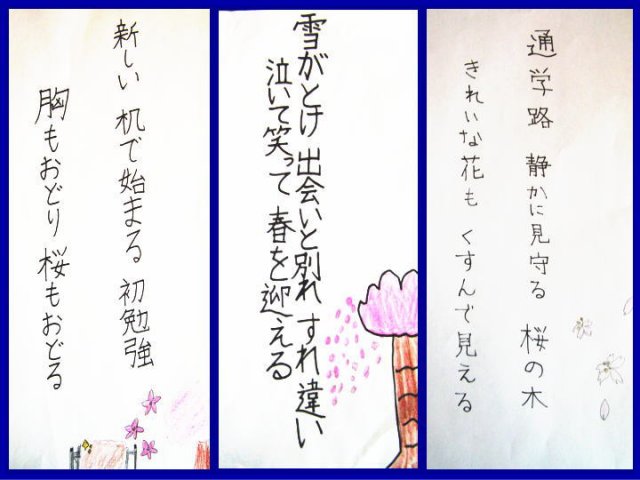 新しい 机で始まる 初勉強
胸もおどり 桜もおどる
雪がとけ 出会いと別れ すれ違い
泣いて笑って 春を迎える
通学路 静かに見守る 桜の木
きれいな花も くすんで見える